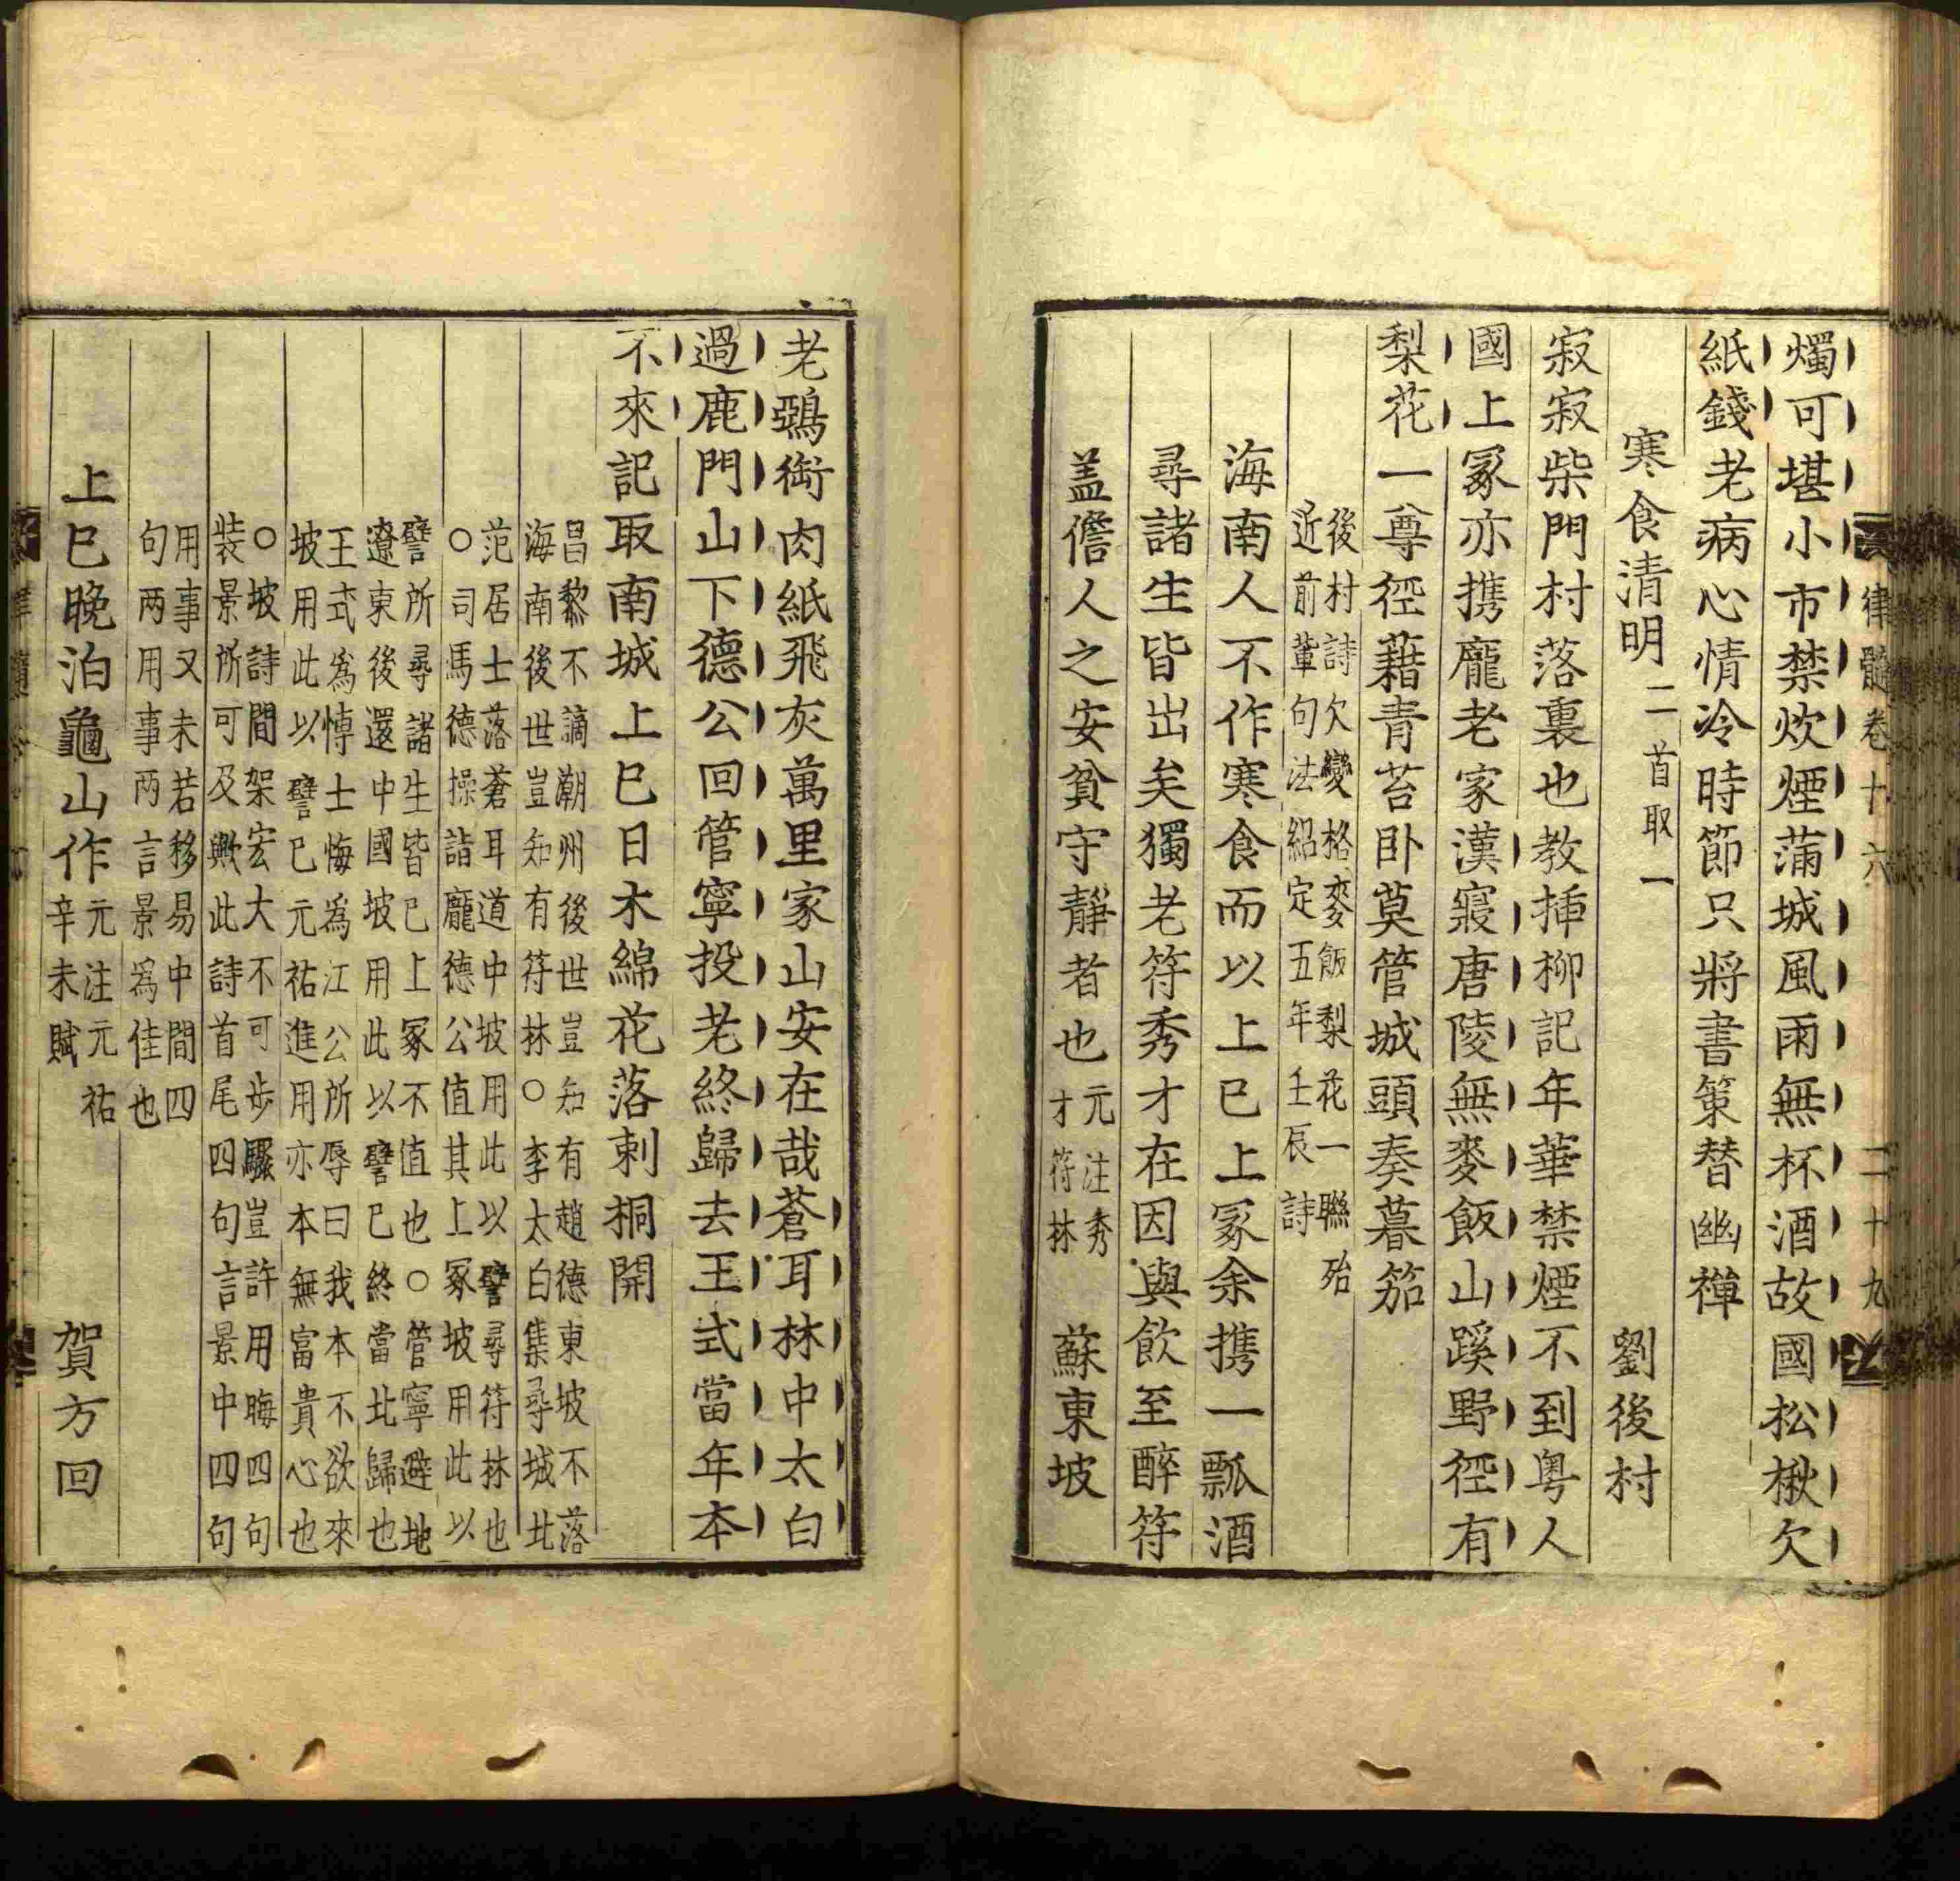 律髓卷十六 二十九
燭可堪小市禁炊煙蒲城風雨無杯酒故國松楸欠
紙錢老病心情冷時節只將書策替幽禪
寒食清明 二首取一 劉後村
寂寂柴門村落裏也教挿柳記年華禁煙不到粤人
國上冢亦攜龐老家漢寢唐陵無麥飯山蹊野徑有
梨花一尊徑藉青苔卧莫管城頭奏暮笳
後村詩欠變格麥飯梨花一聯殆
近前輩句法紹定五年壬辰詩
海南人不作寒食而以上巳上冢余攜一瓢酒
尋諸生皆出矣獨老符秀才在因與飲至醉符
盖儋人之安貧守靜者也 元注秀才符林 蘇東坡
老鵶銜肉紙飛灰萬里家山安在哉蒼耳林中太白
過鹿門山下德公回管寧投老終歸去王式當年本
不來記取南城上巳日木綿花落刺桐開
昌黎不謫潮州後世豈知有趙德東坡不落
海南後世豈知有符林○李太白集尋城北
范居士落蒼耳道中坡用此以譬尋符林也
○司馬德操詣龐德公值其上冢坡用此以
譬所尋諸生皆已上冢不值也○管寧避地
遼東後還中國坡用此以譬已終當北歸也
王式爲博士悔爲江公所辱曰我本不欲來
坡用此以譬已元祐進用亦本無富貴心也
○坡詩間架宏大不可步驟豈許用晦四句
裝景所可及歟此詩首尾四句言景中四句
用事又未若移易中間四
句两用事两言景爲佳也
上巳晚泊龜山作 元注元祐辛未賦 賀方回